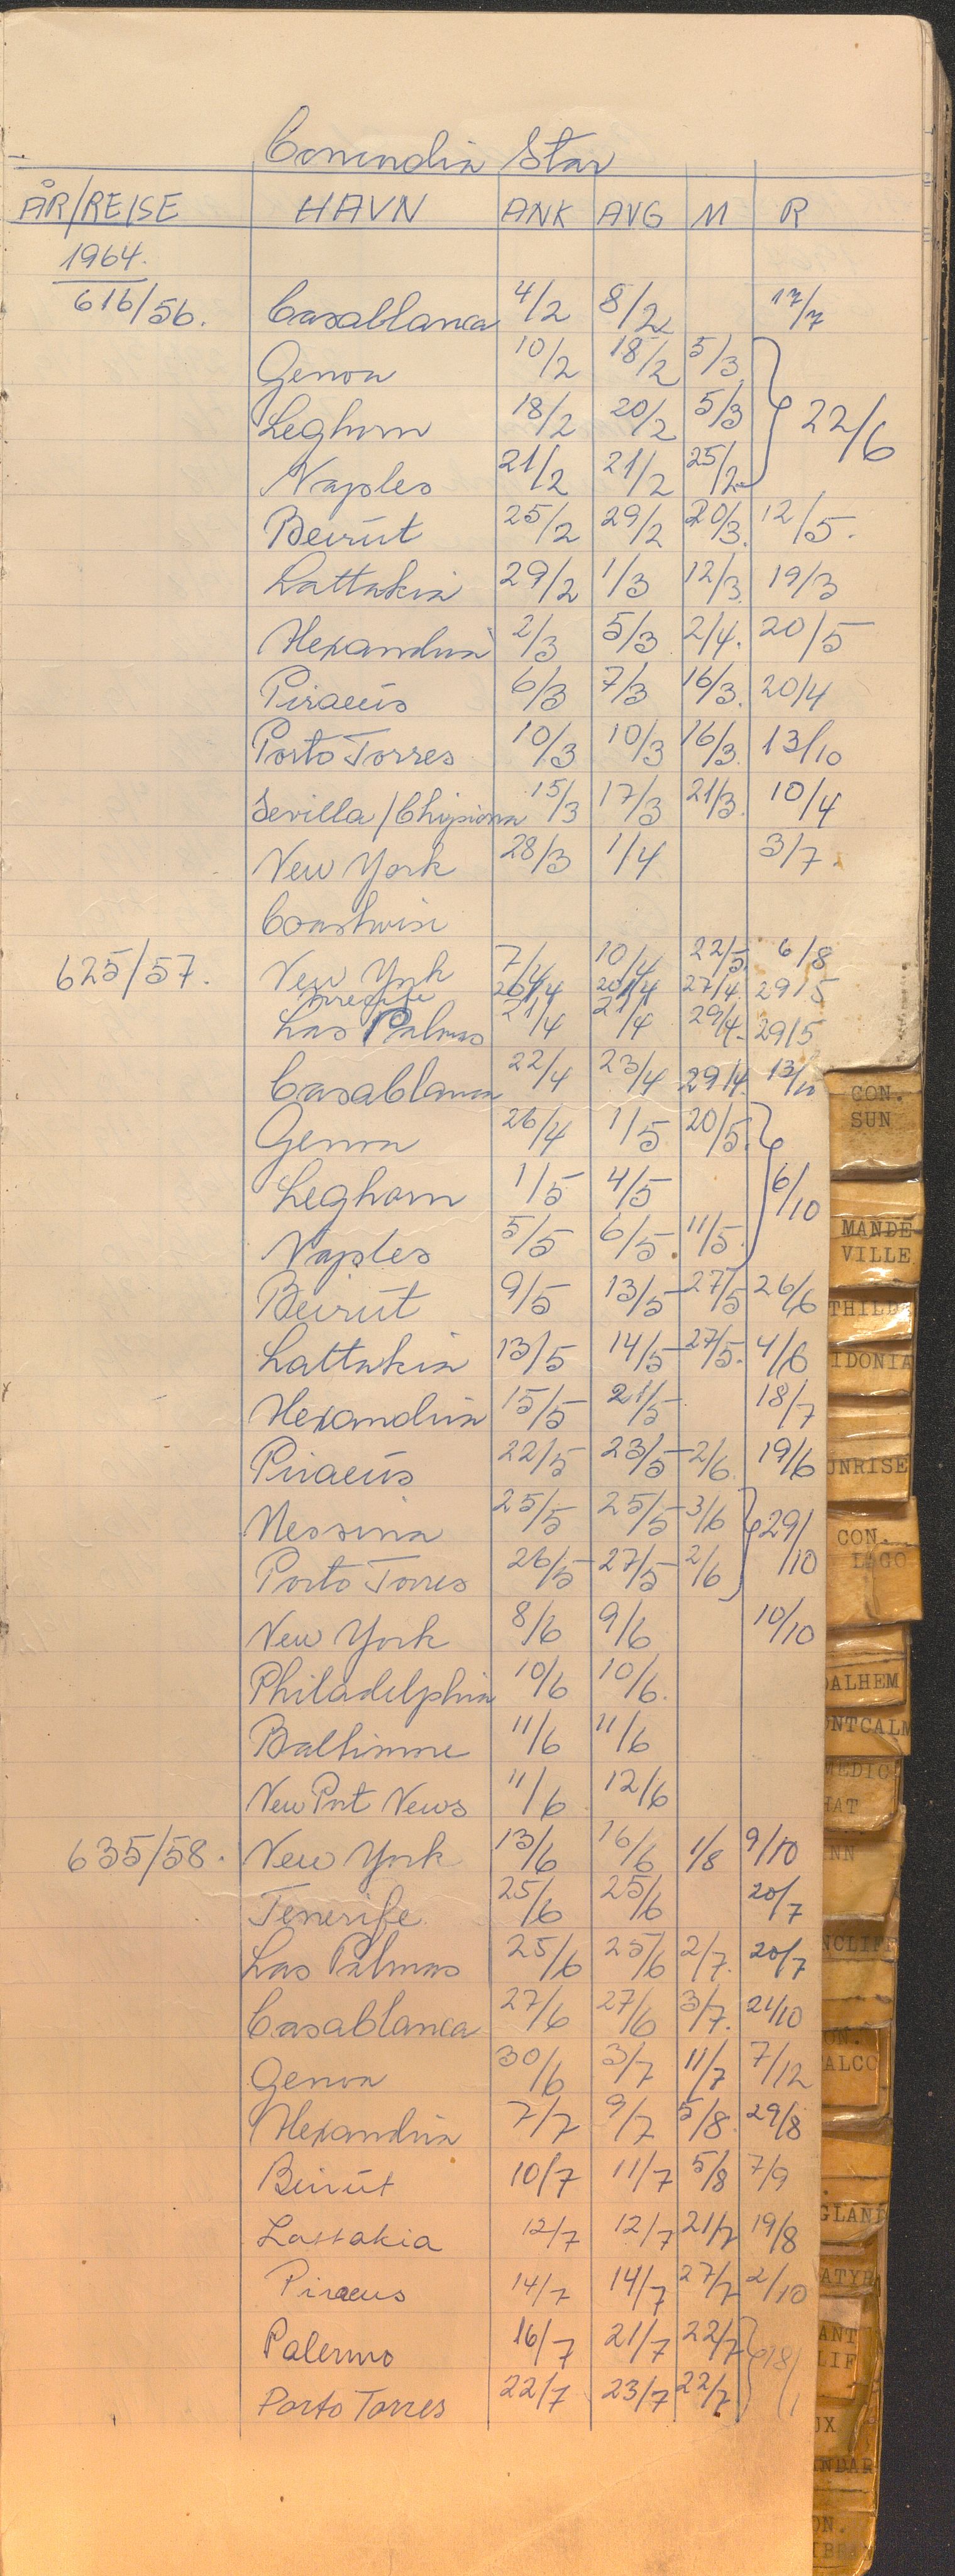 Concordia Star
ÅR/REISE HAVN ANK AVG M R
1964.
616/56. Casablanca 4/2 8/2 17/7
Genoa 10/2 18/2 5/3
Leghorn 18/2 20/2 5/3 22/6
Naples 21/2 21/2 25/2
Beirut 25/2 29/2 20/3. 12/5.
Lattakia 29/2 1/3 12/3. 19/3
Alexandria 2/3 5/3 2/4. 20/5
Piraeus 6/3 7/3 16/3. 20/4
Porto Torres 10/3 10/3 16/3. 13/10
Sevilla/Chipiona 15/3 17/3 21/3. 10/4
New York 28/3 1/4 3/7.
Coastwise
625/57. New York 7/4 10/4 22/5. 6/8
Tenerife 20/4 20/4 27/4. 29/5
Las Palmas 21/4 21/4 29/4. 29/5
Casablanca 22/4 23/4 29/4.
Genoa 26/4 1/5 20/5.
Leghorn 1/5 4/5 6/10
Naples 5/5 6/5. 11/5.
Beirut 9/5 13/5 27/5 26/6
Lattakia 13/5 14/5 27/5. 4/6
Alexandria 15/5 21/5 18/7
Piraeus 22/5 23/5 2/6. 19/6
Messina 25/5 25/5 3/6 29/10
Porto Torres 26/5 27/5 2/6
New York 8/6 9/6 10/10
Philadelphia 10/6 10/6.
Baltimore 11/6 11/6
New Port News 11/6 12/6
635/58. New York 13/6 16/6 1/8 9/10
Tenerife 25/6 25/6 20/7
Las Palmas 25/6 25/6 2/7. 20/7
Casablanca 27/6 27/6 3/7. 21/10
Genoa 30/6 3/7 11/7 7/12
Alexandria 7/7 9/7 5/8. 29/8
Beirut 10/7 11/7 5/8 7/9
Lattakia 12/7 12/7 21/7 19/8
Piraeus 14/7 14/7 27/7 2/10
Palermo 16/7 21/7 22/7
Porto Torres 22/7 23/7 22/7
CON.
SUN
MANDE
VILLE
THILD
IDONIA
UNRISE
CON.
LAGO
DALHEM
ONTCALM
MEDICI
HAT
NN
NCLIFF
ON.
ALCO
GLAND
ATYR
ANT
LIF
UX
NDAR
ON.